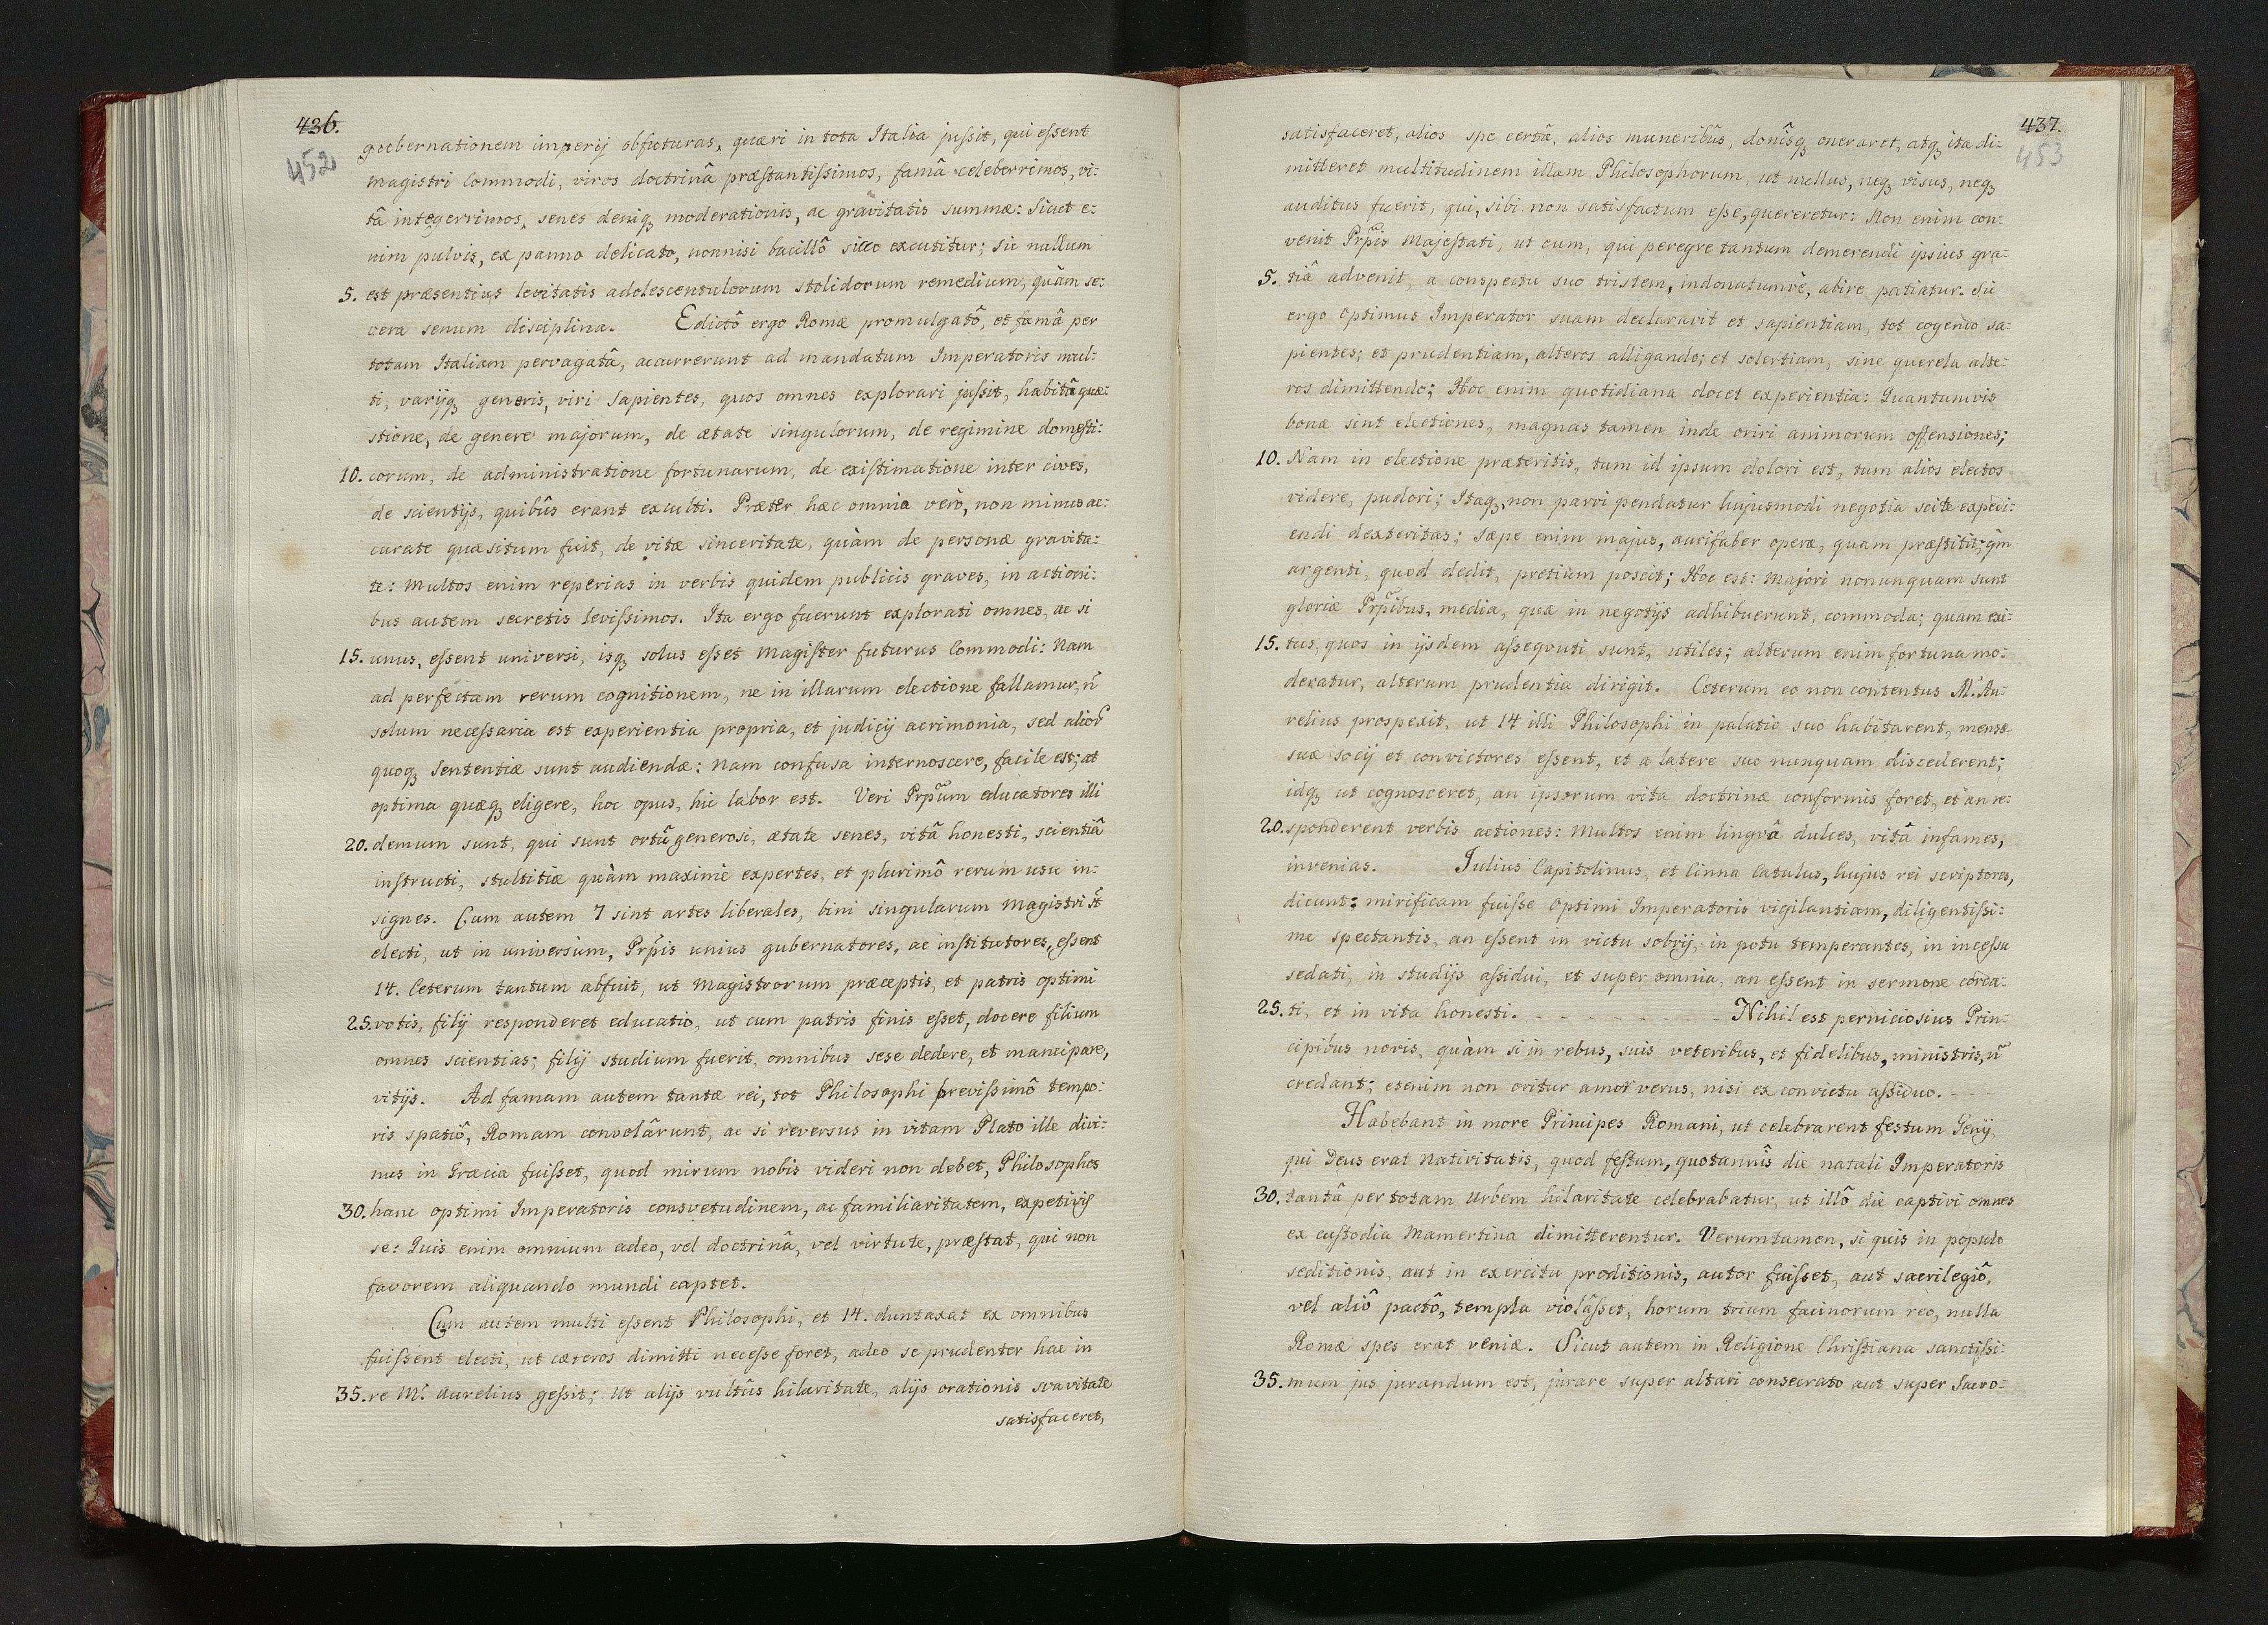 436.
452
gubernationem imperij obfuturas, quæri in tota Italia juſsit, qui eſsent
magistri Commodi, viros doctrinâ præſtantiſsimos, famâ celeberrimos, vi:
tâ integerrimos, senes deniq₃ moderationis, ac gravitatis summæ: Sicut e:
nim pulvis, ex panno delicato, nonnisi bacillô sicco excutitur; sic nullum
5. est præsentius levitatis adolescentulorum stolidorum remedium, quàm se:
vera senum disciplina. Edictô ergo Romæ promulgatô, et famâ per
totam Italiam pervagatâ, accurrerunt ad mandatum Imperatoris mul:
ti, varijq₃ generis, viri Sapientes, quos omnes explorari juſsit, habitâ quæ:
stione, de genere majorum, de ætate singulorum, de regimine domeſti:
10. corum, de administratione fortunarum, de exiſtimatione inter cives,
de scientijs, quibûs erant exculti. Præter hæc omnia verò, non minus ac:
curate quæsitum fuit, de vitæ sinceritate, quàm de personæ gravita:
te: Multos enim reperias in verbis quidem publicis graves, in actioni:
bus autem secretis leviſsimos. Ita ergo fuerunt explorati omnes, ac si
15. unus, eſsent universi, isq₃ solus eſset Magiſter futurus Commodi: Nam
ad perfectam rerum cognitionem, ne in illarum electione fallamur, n̄
solum neceſsaria est experientia propria, et judicij acrimonia, sed alior̄
quoq₃ Sententiæ sunt audiendæ: Nam confusa internoscere, facile est; at
optima quæq₃ eligere, hoc opus, hic labor est. Veri Prp̄um educatores illi
20. demum sunt, qui sunt ortû generosi, ætate senes, vitâ honesti, scientiâ
inſtructi, stultitiæ quàm maximè expertes, et plurimô rerum usu in-
signes. Cum autem 7 sint artes liberales, bini singularum Magistri st̄
electi, ut in universum, Prp̄is unius gubernatores, ac inſtitutores, eſsent
14. Ceterum tantum abfuit, ut Magistrorum præceptis, et patris optimi
25. votis, filij responderet educatio, ut cum patris finis eſset, docere filium
omnes scientias; filij studium fuerit, omnibus sese dedere, et mancipare,
vitijs. Ad famam autem tantæ rei, tot Philosophi breviſsimô tempo:
ris spatiô, Romam convolârunt, ac si reversus in vitam Plato ille divi:
nus in Græcia fuiſset, quod mirum nobis videri non debet, Philosophos
30. hanc optimi Imperatoris consvetudinem, ac familiaritatem, expetiviſ
se: Quis enim omnium adeo, vel doctrinâ, vel virtute, præſtat, qui non
favorem aliquando mundi captet.
Cum autem multi eſsent Philosophi, et 14. duntaxat ex omnibus
fuiſsent electi, ut cæteros dimitti neceſse foret, adeo se prudenter hac in
35. re M. Aurelius geſsit; Ut alijs vultûs hilaritate, alijs orationis svavitate
satisfaceret,
437.
453
satisfaceret, alios spe certâ, alios muneribûs, donîsq₃ oneraret, atq₃ ita di:
mitteret multitudinem illam Philosophorum, ut nullus, neq₃ visus, neq₃
auditus fuerit, qui, sibi non satisfactum eſse, quereretur: Non enim con:
venit Prp̄is Majeſtati, ut eum, qui peregre tantum demerendi ipsius gra:
5. tiâ advenit, a conspectu suo tristem, indonatumvè, abire patiatur. Sic
ergo Optimus Imperator suam declaravit et sapientiam, tot cogendo sa:
pientes; et prudentiam, alteros alligando; et solertiam, sine querela alte:
ros dimittendo; Hoc enim quotidiana docet experientia: Quantumvis
bonæ sint electiones, magnas tamen inde oriri animorum offensiones;
10. Nam in electione præteritis, tum id ipsum dolori est, tum alios electos
videre, pudori; Itaq₃, non parvi pendatur hujusmodi negotia scite expedi:
endi dexteritas; sæpe enim majus, aurifaber operæ, quam præſtitit, qm̄
argenti, quod dedit, pretium poscit; Hoc est: Majori nonunquam sunt
gloriæ Prp̄ibus, media, quæ in negotijs adhibuerunt, commoda; quam exi:
15. tus, quos in ijsdem aſsequuti sunt, utiles; alterum enim fortuna mo:
deratur, alterum prudentia dirigit. Ceterum eo non contentus M. Au:
relius prospexit, ut 14 illi Philosophi in palatio suo habitarent, mensæ
suæ socij et convictores eſsent, et a latere suo nunquam discederent;
idq₃ ut cognosceret, an ipsorum vita doctrinæ conformis foret, et an re:
20. sponderent verbis actiones: Multos enim lingvâ dulces, vitâ infames,
invenias. Julius Capitolinus, et Cinna Catulus, hujus rei scriptores,
dicunt: mirificam fuiſse Optimi Imperatoris vigilantiam, diligentiſsi:
me spectantis, an eſsent in victu sobrij, in potu temperantes, in inceſsu
sedati, in studijs aſsidui, et super omnia, an eſsent in sermone corda:
25. ti, et in vita honesti. - - - - - - - Nihil est perniciosius Prin:
cipibus novis, quàm si in rebus, suis veteribus, et fidelibus, ministris, n̄
credant; etenim non oritur amor verus, nisi ex convictu aſsiduo. - - -
Habebant in more Principes Romani, ut celebrarent festum Genij,
qui Deus erat Nativitatis, quod feſtum, quotannîs die natali Imperatoris
30. tantâ per totam Urbem hilaritate celebrabatur, ut illô die captivi omnes
ex cuſtodia Mamertina dimitterentur. Verumtamen, si quis in populo
seditionis, aut in exercitu proditionis, autor fuiſset, aut sacrilegiô,
vel aliô pactô, templa violâſset, horum trium facinorum reo, nulla
Romæ spes erat veniæ. Sicut autem in Religione Chriſtiana sanctiſsi:
35. mum jus jurandum est, jurare super altari consecrato aut super Sacro-